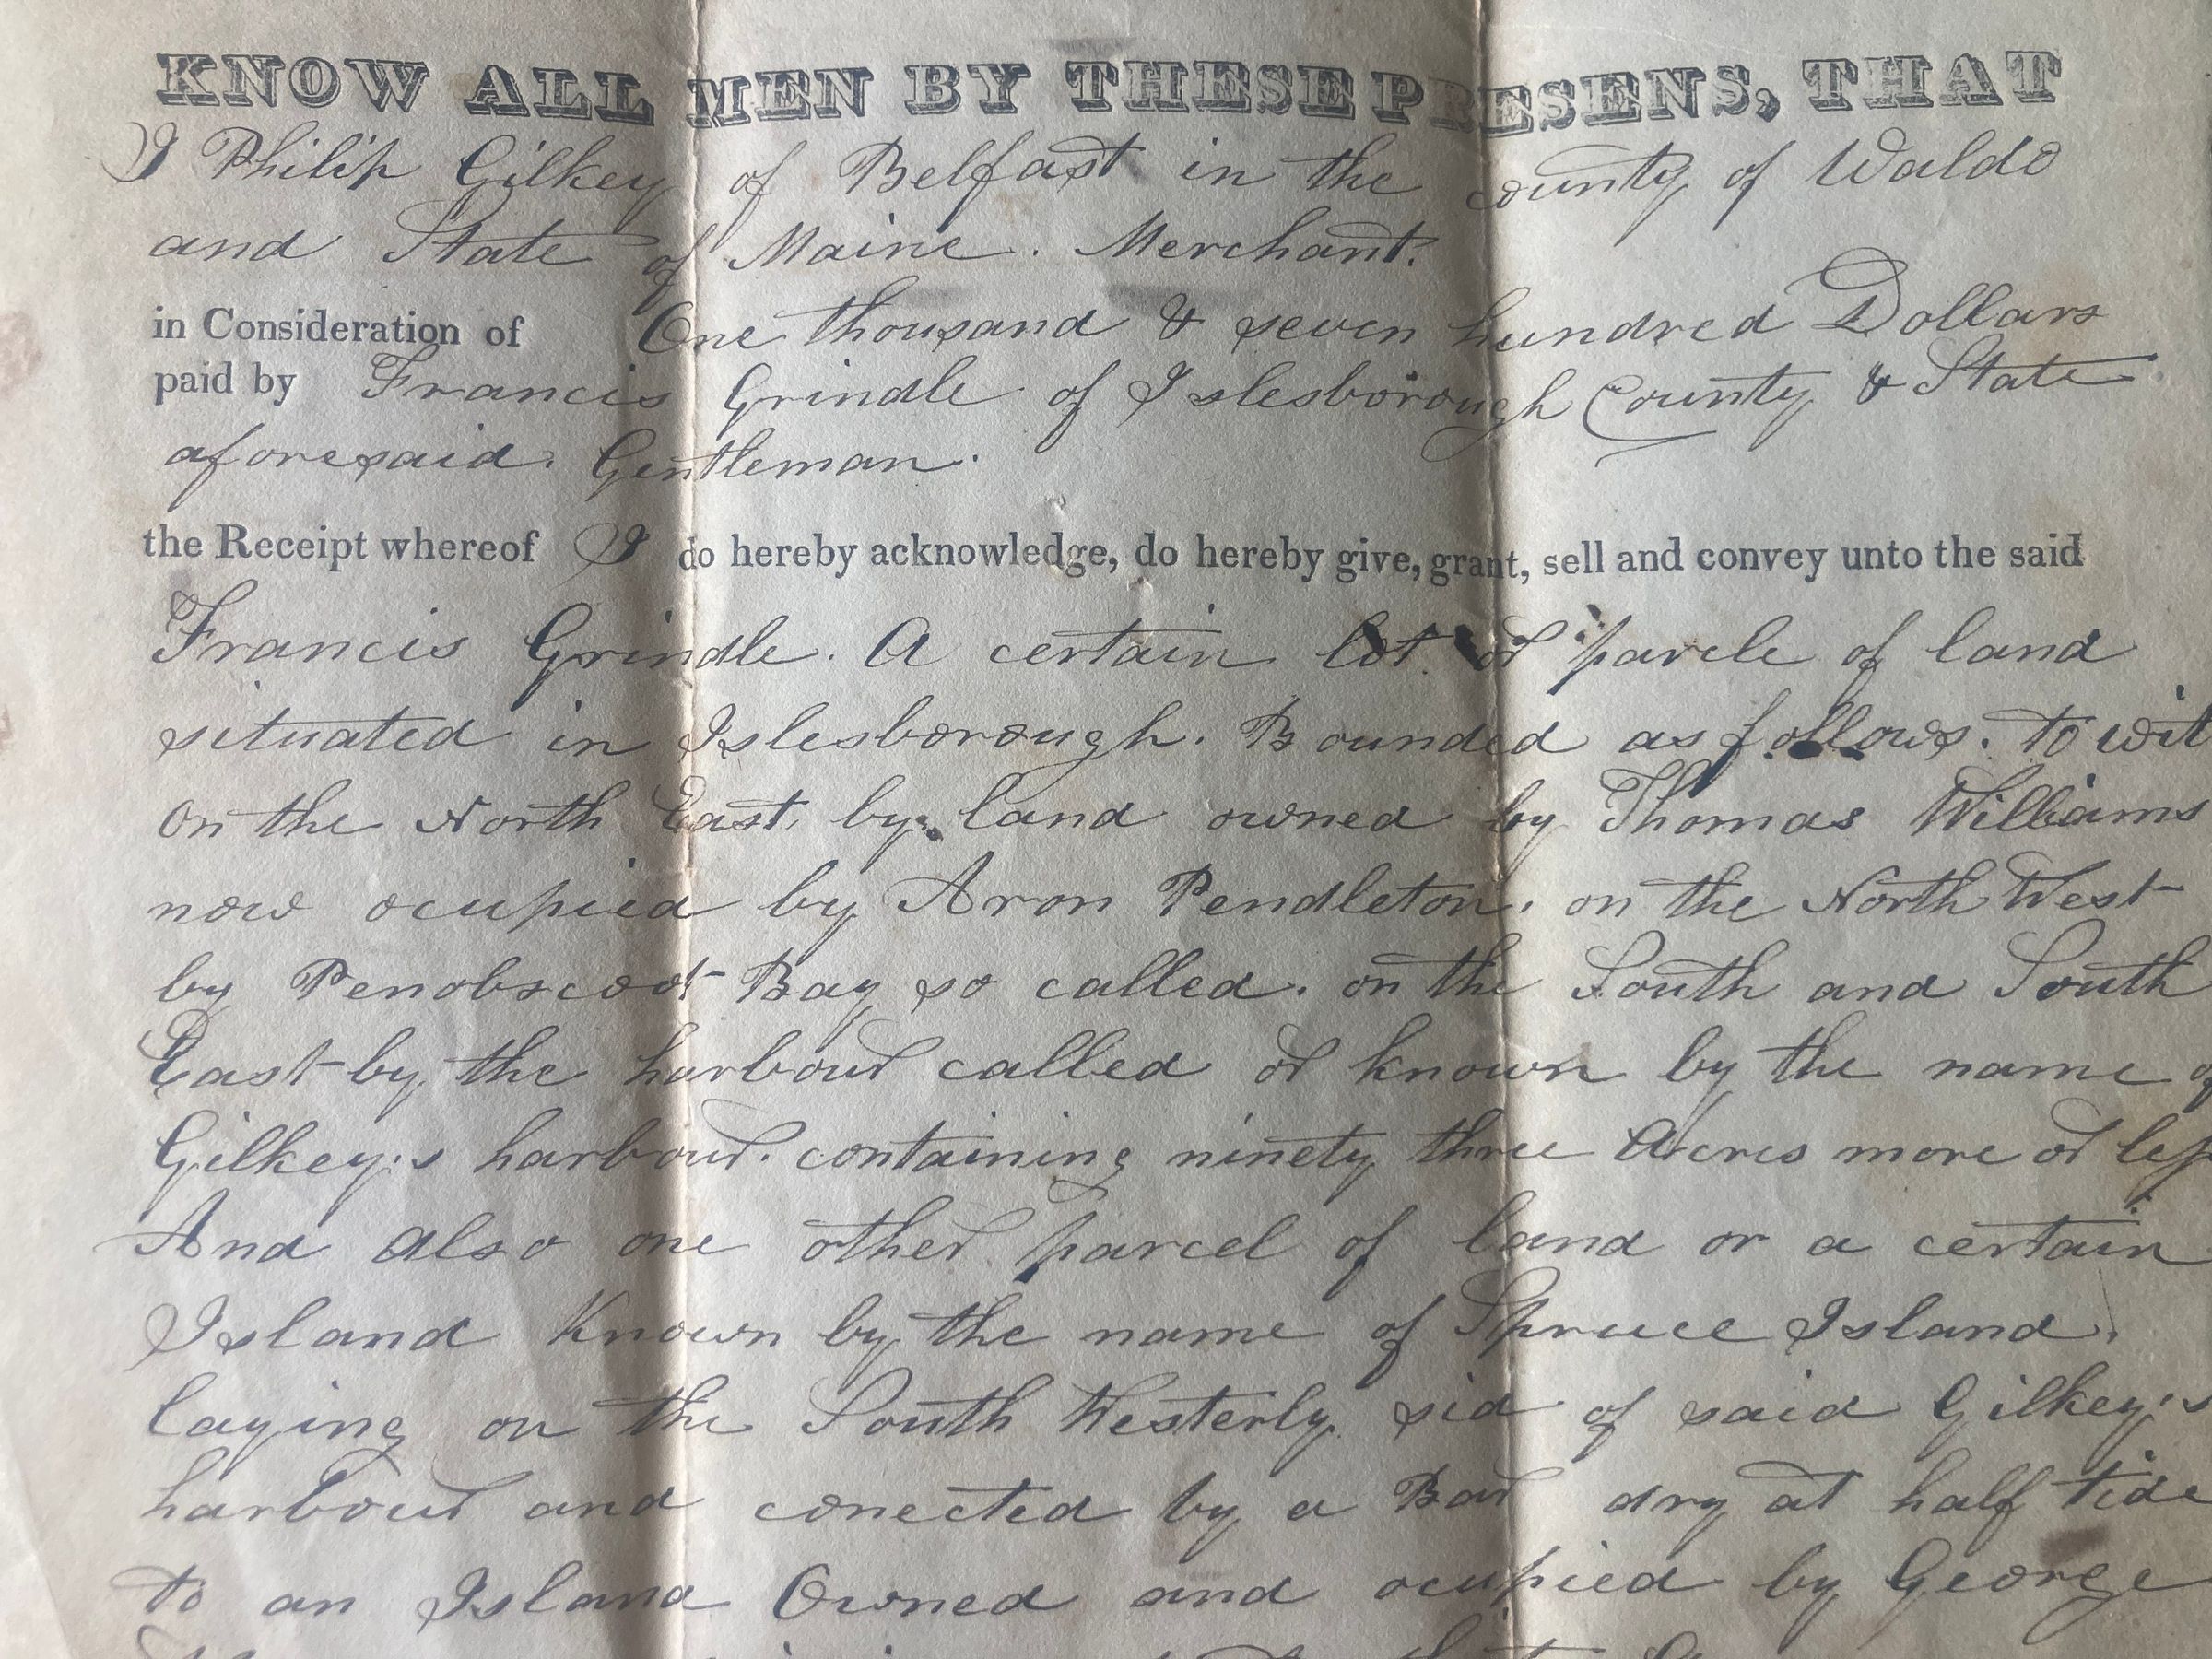 KNOW ALL MEN BY THESE PRESENS, THAT
I Philip Gilkey of Belfast in the county of Waldo
and State of Maine. Merchant.
in Consideration of One thousand & seven hundred Dollars
paid by Francis Grindle of Islesborough County & State
aforesaid. Gentleman.
the Receipt whereof I do hereby acknowledge, do hereby give, grant, sell and convey unto the said
Francis Grindle. A certain lot or parcle of land
situated in Islesborough. Bounded as follows. to wit
On the North East, by land owned by Thomas Williams
now ocupied by Aron Pendleton, on the North West
by Penobscoot Bay so called. on the South and South
East by the harbour called or known by the name of
Gilkey's harbour. containing ninety three Acres more or less
And also one other parcel of land or a certain
Island Known by the name of Spruce Island.
laying on the South Westerly sid of said Gilkey's
harbour and conected by a Bar dry at half tide
to an Island Owned and ocupied by George